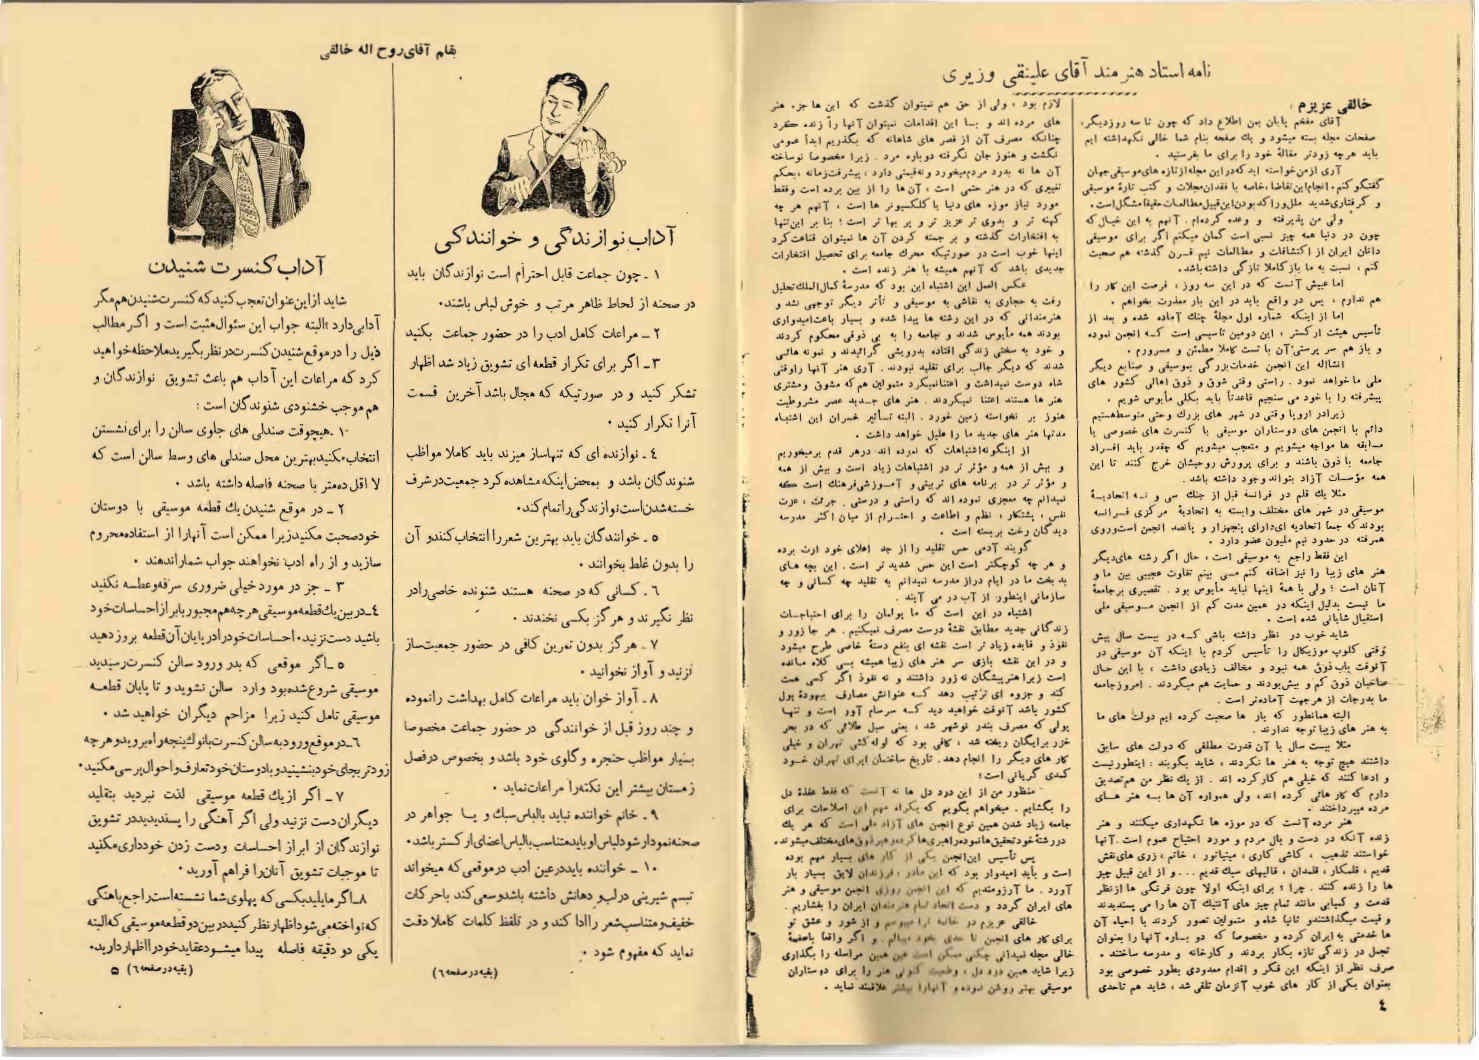 نامه استاد هنرمند آقای علینقی وزیری
خالقی عزیزم :
آقای مفخم پایان بمن اطلاع داد که چون تا سه روز دیگر،
صفحات مجله بسته میشود و یك صفحه بنام شما خالی نگهداشته ایم
باید هرچه زودتر مقالهٔ خود را برای ما بفرستید .
آری از من خواسته اید که در این مجله از تازه های موسیقی جهان
گفتگو کنم. انجام این تقاضا، خاصه با فقدان مجلات و کتب تازهٔ موسیقی
و گرفتاری شدید ملل و راکد بودن این قبیل مطالعات حقیقتا مشکل است.
ولی من پذیرفته و وعده کرده‌ام. آنهم به این خیال که
چون در دنیا همه چیز نسبی است گمان میکنم اگر برای موسیقی
دانان ایران از اکتشافات و مطالعات نیم قرن گذشته هم صحبت
کنم ، نسبت به ما باز کاملا تازگی داشته باشد.
اما عیبش آنست که در این سه روز ، فرصت این کار را
هم ندارم ، پس در واقع باید در این بار معذرت بخواهم .
اما از اینکه شماره اول مجلهٔ چنك آماده شده و بعد از
تأسیس هیئت ارکستر ، این دومین تاسیسی است که انجمن نموده
و باز هم سر پرستی آن با تست کاملا مطمئن و مسرورم .
انشااله این انجمن خدمات بزرگی بموسیقی و صنایع دیگر
ملی ما خواهد نمود . راستی وقتی شوق و ذوق اهالی کشور های
پیشرفته را با خود می سنجیم قاعدتاً باید بکلی مأیوس شویم .
زیرا در اروپا وقتی در شهر های بزرك وحتی متوسط هستیم
دائم با انجمن های دوستاران موسیقی با کنسرت های خصوصی یا
مسابقه ها مواجه میشویم و متعجب میشویم که چقدر باید افراد
جامعه با ذوق باشند و برای پرورش روحیشان خرج کنند تا این
همه مؤسسات آزاد بتواند وجود داشته باشد .
مثلا یك قلم در فرانسه قبل از جنك سی و نه اتحادیهٔ
موسیقی در شهر های مختلف وابسته به اتحادیهٔ مرکزی فرانسه
بودند که جمعاً اتحادیه ای دارای پنجهزار و پانصد انجمن است و روی
همرفته در حدود نیم ملیون عضو دارد .
این فقط راجع به موسیقی است ، حال اگر رشته های دیگر
هنر های زیبا را نیز اضافه کنم می بینم تفاوت عجیبی بین ما و
آنان است ؛ ولی با همهٔ اینها نباید مأیوس بود . تقصیری بر جامعهٔ
ما نیست بدلیل اینکه در همین مدت کم از انجمن موسیقی ملی
استقبال شایانی شده است .
شاید خوب در نظر داشته باشی که در بیست سال پیش
وقتی کلوب موزیکال را تأسیس کردم با اینکه آن موسیقی در
آنوقت باب ذوق همه نبود و مخالف زیادی داشت ، با این حال
صاحبان ذوق کم و بیش بودند و حمایت هم میکردند . امروز جامعه
ما بدرجات از هر جهت آماده‌تر است .
البته همانطور که بار ها صحبت کرده ایم دولت های ما
به هنر های زیبا توجه ندارند .
مثلا بیست سال با آن قدرت مطلقی که دولت های سابق
داشتند هیچ توجه به هنر ها نکردند ، شاید بگویند : اینطور نیست
و ادعا کنند که خیلی هم کار کرده اند . از یك نظر من هم تصدیق
دارم که کار هائی کرده اند، ولی همواره آن ها به هنر های
مرده میپرداختند .
هنر مرده آنست که در موزه ها نگهداری میکنند و هنر
زنده آنکه در دست و بال مردم و مورد احتیاج عموم است. آنها
خواستند تذهیب ، کاشی کاری ، مینیاتور ، خاتم ، زری های نقش
قدیم ، قلمکار ، قلمدان ، قالیهای سبك قدیم ... و از این قبیل چیز
ها را زنده کنند . چرا ؛ برای اینکه اولا چون فرنگی ها از نظر
قدمت و کمیابی مانند تمام چیز های آنتیك آن ها را می پسندیدند
و قیمت میگذاشتند و ثانیا شاه و متمولین تصور کردند با احیاء آن
ها خدمتی به ایران کرده و مخصوصا که دو باره آنها را بعنوان
تجمل در زندگی تازه بکار بردند و کارخانه و مدرسه ساختند .
صرف نظر از اینکه این فکر و اقدام معدودی بطور خصوصی بود
بعنوان یکی از کار های خوب آنزمان تلقی شد ، شاید هم تاحدی
لازم بود ، ولی از حق هم نمیتوان گذشت که این ها جزء هنر
های مرده اند و بسا این اقدامات نمیتوان آنها را زنده کرد
چنانکه مصرف آن از قصر های شاهانه که بگذریم ابداً عمومی
نگشت و هنوز جان نگرفته دوباره مرد . زیرا مخصوصا نوساخته
آن ها نه بدرد مردم میخورد و نه قیمتی دارد ، پیشرفت زمانه ، بحکم
تغییری که در هنر حتمی است ، آن ها را از بین برده است و فقط
مورد نیاز موزه های دنیا یا کلکسیونر ها است ، آنهم هر چه
کهنه تر و بدوی تر عزیز تر و پر بها تر است ؛ بنا بر این تنها
به افتخارات گذشته و بر جسته کردن آن ها نمیتوان قناعت کرد
اینها خوب است در صورتیکه محرك جامعه برای تحصیل افتخارات
جدیدی باشد که آنهم همیشه با هنر زنده است .
عکس العمل این اشتباه این بود که مدرسهٔ کمال الملك تحلیل
رفت به حجاری به نقاشی به موسیقی و تأتر دیگر توجهی نشد و
هنرمندانی که در این رشته ها پیدا شده و بسیار باعث امیدواری
بودند همه مأیوس شدند و جامعه را به بی ذوقی محکوم کردند
و خود به سختی زندگی افتاده بدرویشی گرائیدند و نمونه هائی
شدند که دیگر جالب برای تقلید نبودند . آری هنر آنها را وقتی
شاه دوست نمیداشت و اعتنا نمیکرد متمولین هم که مشوق و مشتری
هنر ها هستند اعتنا نمیکردند . هنر های جدید عصر مشروطیت
هنوز بر نخواسته زمین خورد . البته تأثیر خسران این اشتباه
مدتها هنر های جدید ما را علیل خواهد داشت .
از اینگونه اشتباهات که نمرده اند در هر قدم بر میخوریم
و بیش از همه و مؤثر تر در اشتباهات زیاد است و بیش از همه
و مؤثر تر در برنامه های تربیتی و آموزشی فرهنك است که
نمیدانم چه معجزی نموده اند که راستی و درستی . جرئت ، عزت
نفس ، پشتکار ، نظم و اطاعت و احترام از میان اکثر مدرسه
دیدگان رخت بربسته است .
گویند آدمی حس تقلید را از جد اعلای خود ارث برده
و هر چه کوچکتر است این حس شدید تر است . این بچه های
بد بخت ما در ایام دراز مدرسه نمیدانم به تقلید چه کسانی و چه
سازمانی اینطور از آب در می آیند .
اشتباه در این است که ما پولمان را برای احتیاجات
زندگانی جدید مطابق نقشهٔ درست مصرف نمیکنیم . هر جا زور و
نفوذ و فایده زیاد تر است نقشه ای بنفع دستهٔ خاصی طرح میشود
و در این نقشه بازی سر هنر های زیبا همیشه بی کلاه مانده
است زیرا هنرپیشگان نه زور داشتند و نه نفوذ اگر کسی همت
کند و جزوه ای ترتیب دهد که عنوانش مصارف بیهودهٔ پول
کشور باشد آنوقت خواهید دید که سرسام آور است و تنها
پولی که مصرف بندر نوشهر شد ، یعنی سیل طلائی که در بحر
خزر برایگان ریخته شد ، کافی بود که لوله کشی تهران و خیلی
کار های دیگر را انجام دهد. تاریخ ساختمان اپرای تهران خود
کمدی گریانی است ؛
منظور من از این درد دل ها نه آنست که فقط عقدهٔ دل
را بگشایم . میخواهم بگویم که یکراه مهم این اصلاحات برای
جامعه زیاد شدن همین نوع انجمن های آزاد ملی است که هر یك
در رشتهٔ خود تحقیق ها نموده و راهبری ها کرده و رهبر ذوق های مختلف میشوند.
پس تأسیس این انجمن یکی از کار های بسیار مهم بوده
است و باید امیدوار بود که این مادر ، فرزندان لایق بسیار بار
آورد . ما آرزومندیم که این انجمن روزی انجمن موسیقی و هنر
های ایران گردد و دست اتحاد تمام هنرمندان ایران را بفشاریم .
خالقی عزیزم در خاتمه ترا میبوسم و از شور و عشق تو
برای کار های انجمن تا حدی بخود میبالم . و اگر واقعا با صفحهٔ
خالی مجله نمیدانی چکنی ممکن است عین همین مراسله را بگذاری
زیرا شاید همین درد دل ، وضعیت کنونی هنر را برای دوستاران
موسیقی بهتر روشن نموده و آنهارا بیشتر علاقمند نماید .
٤
بقلم آقای روح اله خالقی
آداب نوازندگی و خوانندگی
۱ ـ چون جماعت قابل احترام است نوازندگان باید
در صحنه از لحاظ ظاهر مرتب و خوش لباس باشند.
۲ ـ مراعات کامل ادب را در حضور جماعت بکنید
۳ ـ اگر برای تکرار قطعه ای تشویق زیاد شد اظهار
تشکر کنید و در صورتیکه که مجال باشد آخرین قسمت
آنرا تکرار کنید .
٤ ـ نوازنده ای که تنها ساز میزند باید کاملا مواظب
شنوندگان باشد و بمحض اینکه مشاهده کرد جمعیت در شرف
خسته شدن است نوازندگی را تمام کند.
٥ ـ خوانندگان باید بهترین شعر را انتخاب کنند و آن
را بدون غلط بخوانند .
٦ ـ کسانی که در صحنه هستند شنونده خاصی را در
نظر نگیرند و هرگز بکسی نخندند .
۷ ـ هرگز بدون تمرین کافی در حضور جمعیت ساز
نزنید و آواز نخوانید .
۸ ـ آواز خوان باید مراعات کامل بهداشت را نموده
و چند روز قبل از خوانندگی در حضور جماعت مخصوصا
بسیار مواظب حنجره و گلوی خود باشد و بخصوص در فصل
زمستان بیشتر این نکته را مراعات نماید .
۹ ـ خانم خواننده نباید با لباس سبك و یا جواهر در
صحنه نمودار شود لباس او باید متناسب با لباس اعضای ارکستر باشد.
۱۰ ـ خواننده باید در عین ادب در موقعی که میخواند
تبسم شیرینی در لب و دهانش داشته باشد و سعی کند با حرکات
خفیف و متناسب شعر را ادا کند و در تلفظ کلمات کاملا دقت
نماید که مفهوم شود .
(بقیه در صفحه ٦)
آداب کنسرت شنیدن
شاید از این عنوان تعجب کنید که کنسرت شنیدن هم مگر
آدابی دارد ؟ البته جواب این سئوال مثبت است و اگر مطالب
ذیل را در موقع شنیدن کنسرت در نظر بگیرید ملاحظه خواهید
کرد که مراعات این آداب هم باعث تشویق نوازندگان و
هم موجب خشنودی شنوندگان است :
۱ ـ هیچوقت صندلی های جلوی سالن را برای نشستن
انتخاب مکنید بهترین محل صندلی های وسط سالن است که
لااقل ده متر با صحنه فاصله داشته باشد .
۲ ـ در موقع شنیدن یك قطعه موسیقی با دوستان
خود صحبت مکنید زیرا ممکن است آنها را از استفاده محروم
سازید و از راه ادب نخواهند جواب شمارا ندهند .
۳ ـ جز در مورد خیلی ضروری سرفه و عطسه نکنید
٤ ـ در بین یك قطعه موسیقی هر چه هم مجبور بابراز احساسات خود
باشید دست نزنید . احساسات خود را در پایان آن قطعه بروز دهید
٥ ـ اگر موقعی که بدر ورود سالن کنسرت رسیدید
موسیقی شروع شده بود وارد سالن نشوید و تا پایان قطعه
موسیقی تامل کنید زیرا مزاحم دیگران خواهید شد .
٦ ـ در موقع ورود به سالن کنسرت با نوك پنجه راه بروید و هر چه
زودتر بجای خود بنشینید و با دوستان خود تعارف و احوال پرسی مکنید.
۷ ـ اگر از یك قطعه موسیقی لذت نبردید بتقلید
دیگران دست نزنید ولی اگر آهنگی را پسندیدید در تشویق
نوازندگان از ابراز احساسات و دست زدن خودداری مکنید
تا موجبات تشویق آنان را فراهم آورید .
۸ ـ اگر مایلید بکسی که پهلوی شما نشسته است راجع باهنگی
که نواخته می شود اظهار نظر کنید در بین دو قطعه موسیقی که البته
یکی دو دقیقه فاصله پیدا میشود عقاید خود را اظهار دارید.
(بقیه در صفحه ٦) ٥